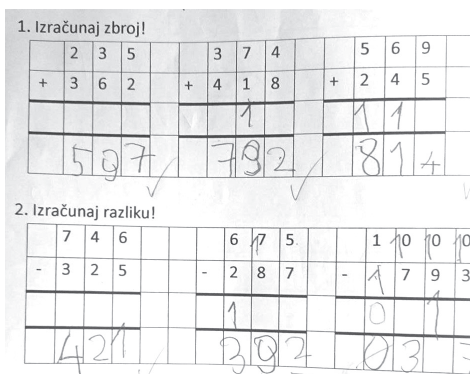 1. Izračunaj zbroj!
2 3 5 3 7 4 5 6 9
+ 3 6 2 + 4 1 8 + 2 4 5
1 1 1
5 9 7 7 9 2 8 1 4
2. Izračunaj razliku!
7 4 6 6 17 5 1 10 10 10
- 3 2 5 - 2 8 7 - 1 7 9 3
1 0 1
4 2 1 3 9 2 0 3